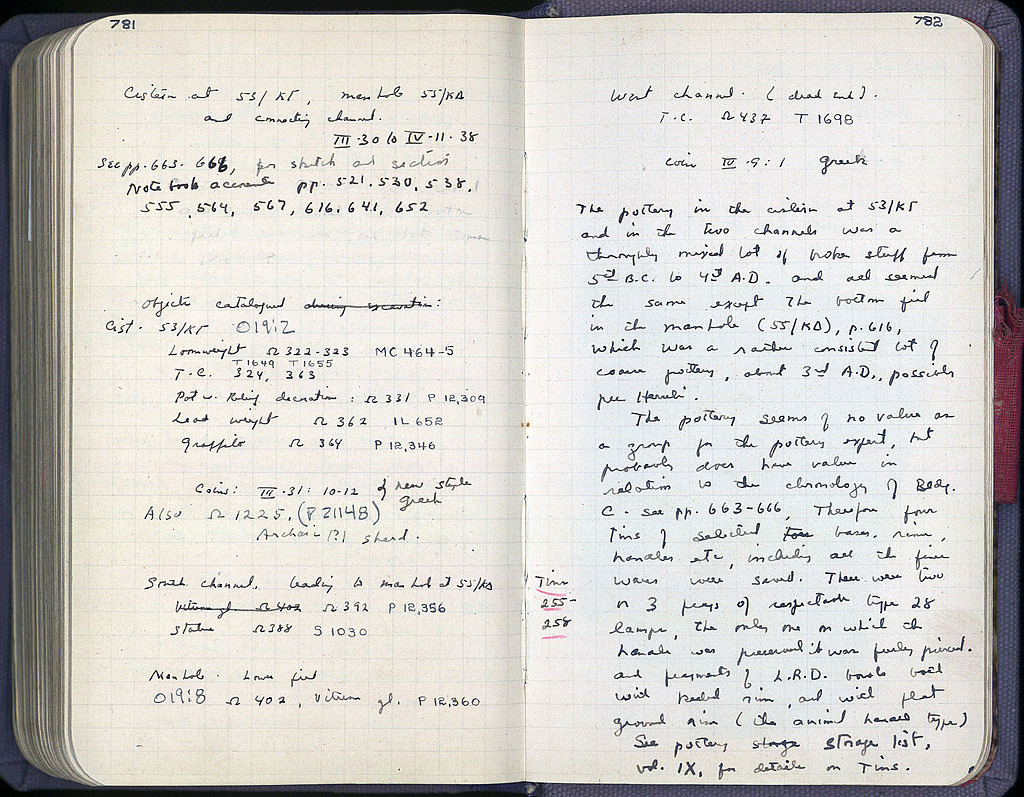 781
Cistern at 53/ΚΓ, manhole 55/ΚΔ
and connecting channel.
III·30 to IV·11·38
See pp. 663-668, for sketch and section
Note book accounts pp. 521, 530, 538,
555, 564, 567, 616, 641, 652
Objects catalogued during excavation:
Cist. 53/ΚΓ O19:2
Loomweight Ω 322-323 MC 464-5
T 1649 T 1655
T.C. 324, 363
Pot w. decoration: Ω 331 P 12,309
Lead weight Ω 362 IL 652
graffito Ω 364 P 12,346
Coins: III·31: 10-12 of new style
Greek
Also Ω 1225, (P 21148)
Archaic(?) sherd.
South channel, leading to manhole at 55/ΚΔ
Vitreous gl. Ω 402 Ω 392 P 12,356
Statue Ω 388 S 1030
Manhole. Lower fill
O19:8 Ω 402, Vitreous gl. P 12,360
782
West channel. (dead end).
T.C. Ω 437 T 1698
Coin IV·9:1 Greek
The pottery in the cistern at 53/ΚΓ
and in the two channels was a
thoroughly mixed lot of broken stuff from
5th B.C. to 4th A.D. and all seemed
the same except the bottom fill
in the manhole (55/ΚΔ), p. 616,
which was a rather consistent lot of
coarse pottery, about 3rd A.D., possibly
pre Heruli.
The pottery seems of no value as
a group for the pottery expert, but
probably does have value in
relation to the chronology of Bldg.
C. See pp. 663-666, Therefore four
Tins of selected toes bases, rims,
handles etc, including all the finer
wares were saved. There were two
Tins
255-
258
or 3 frags of respectable type 28
lamps, the only one on which the
handle was preserved it was fully pierced.
and fragments of L.R.D. bowls both
with beaded rim, and with flat
ground rim (the animal handle type)
See pottery storage storage list,
vol. IX, for details on Tins.